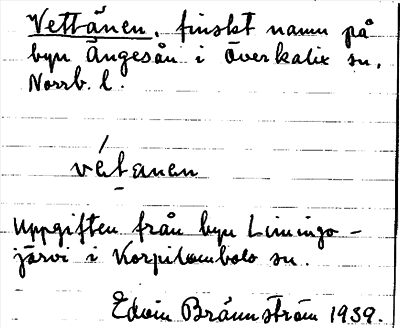 Vettänen, finskt namn på
byn Ängesån i Överkalix sn,
Norrb. l.
vétanen
Uppgiften från byn Liningo-
järvi i Korpilombolo sn.
Edvin Brännström 1939.